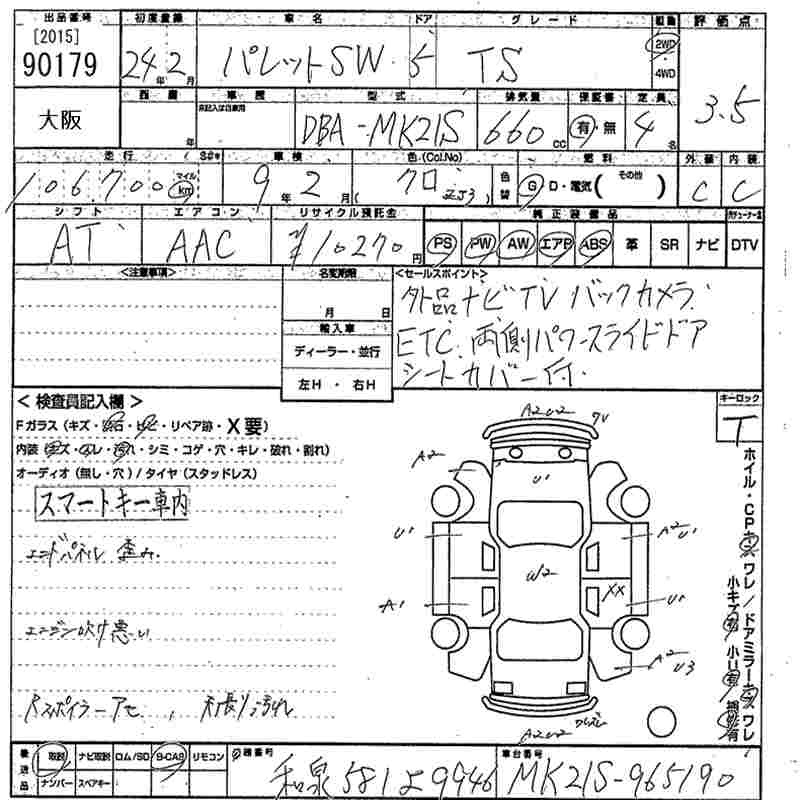 出品番号 初度登録 車名 ドア グレード 駆動 評価点
[2015]
90179 24年2月 パレットSW 5 TS 2WD 4WD 3.5
大阪 西暦 年 車歴 未記入は自家用 型式 DBA-MK21S 排気量 660cc 保証書 有・無 定員 4名
走行 車検 色(Col.No) 色替 燃料 外装 内装
106,700 マイル km 9年2月 クロ ZJ3 G D・電気 (その他) C C
シフト エアコン リサイクル預託金 純正装備品
AT AAC ¥10270円 PS PW AW エアB ABS 革 SR ナビ DTV
<注意事項> 名変期限 <セールスポイント>
月 日
輸入車
ディーラー・並行
左H・右H
外品ナビTV バックカメラ
ETC 両側パワースライドドア
シートカバー付
キーロック
T
<検査員記入欄>
Fガラス(キズ・飛石・ヒビ・リペア跡・X要)
内装(キズ・スレ・汚れ・シミ・コゲ・穴・キレ・破れ・割れ)
オーディオ(無し・穴)/タイヤ(スタッドレス)
スマートキー車内
エンドパネル 歪み
エンジン吹け悪い
Rスポイラーアセ, 天張り汚れ
A2U2
U1
A2
U1
A2 U1
W2
A1
XX
U1
A2 U3
A2U2
ホイル・CPキズ ワレ/ドアミラーキズ ワレ
小キズ有 小U有
後送品 取説 ナビ取説 ロム/SD 9-CAS リモコン
ナンバー スペアキー
登録番号 和泉581よ9946
車台番号 MK21S-965190